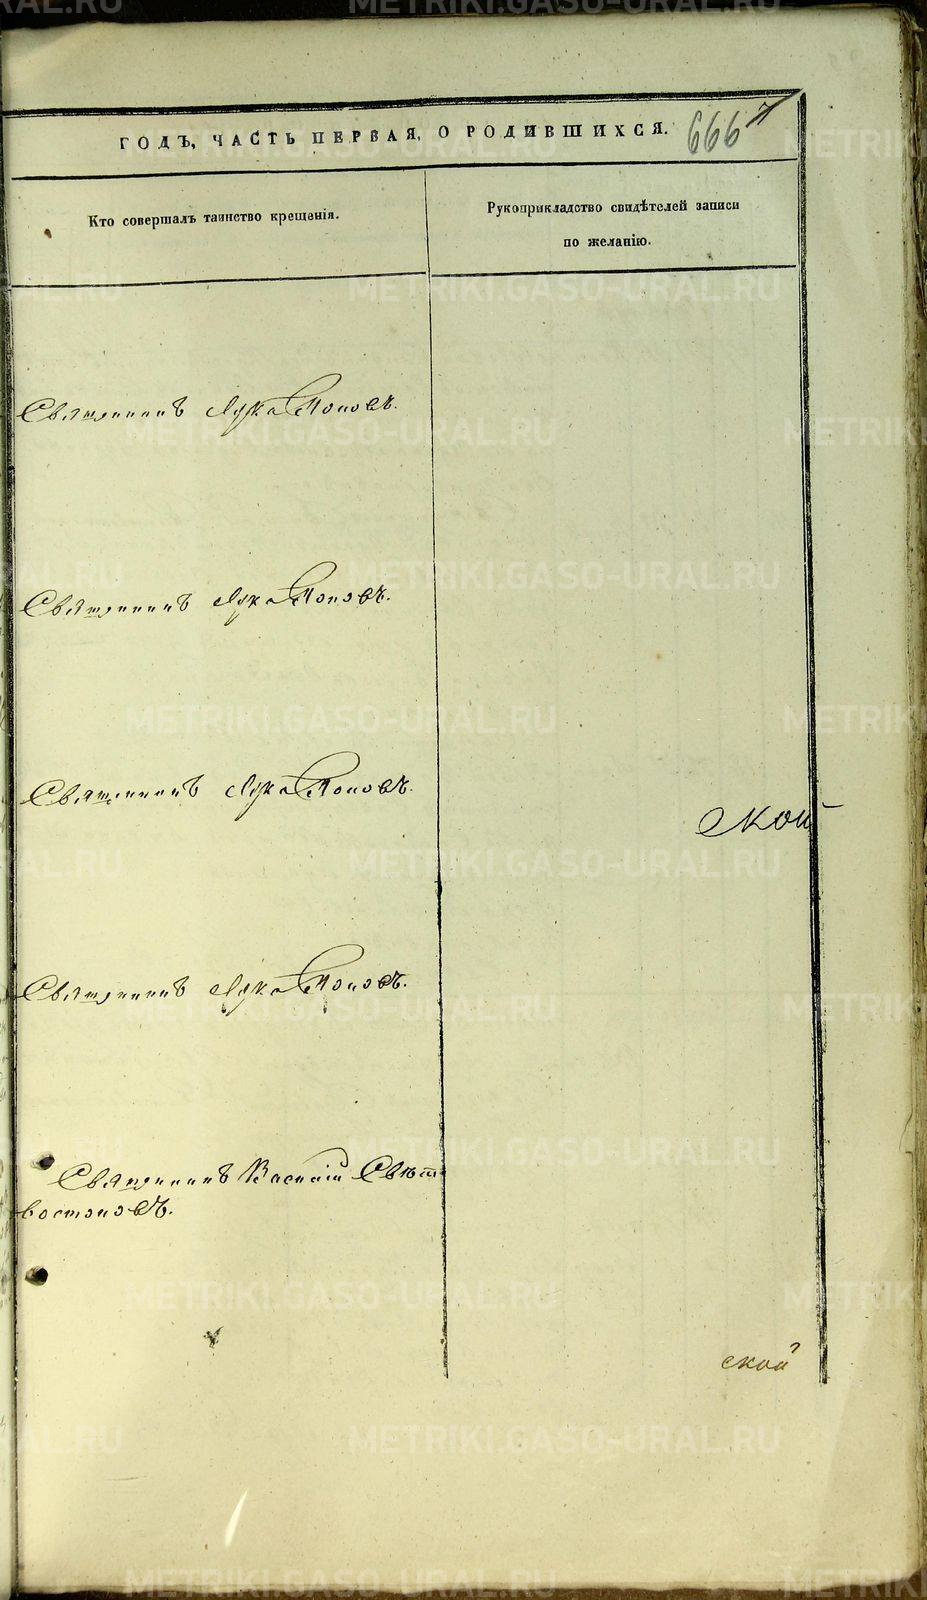 ГОДЪ, ЧАСТЬ ПЕРВАЯ, О РОДИВШИХСЯ. 666
Кто совершалъ таинство крещенія.
Рукоприкладство свидѣтелей записи
по желанію.
Священникъ Лука Поповъ.
Священникъ Лука Поповъ.
Священникъ Лука Поповъ.
ской
Священникъ Лука Поповъ.
Священникъ Василій Свѣто-
востоковъ.
ской
METRIKI.GASO-URAL.RU